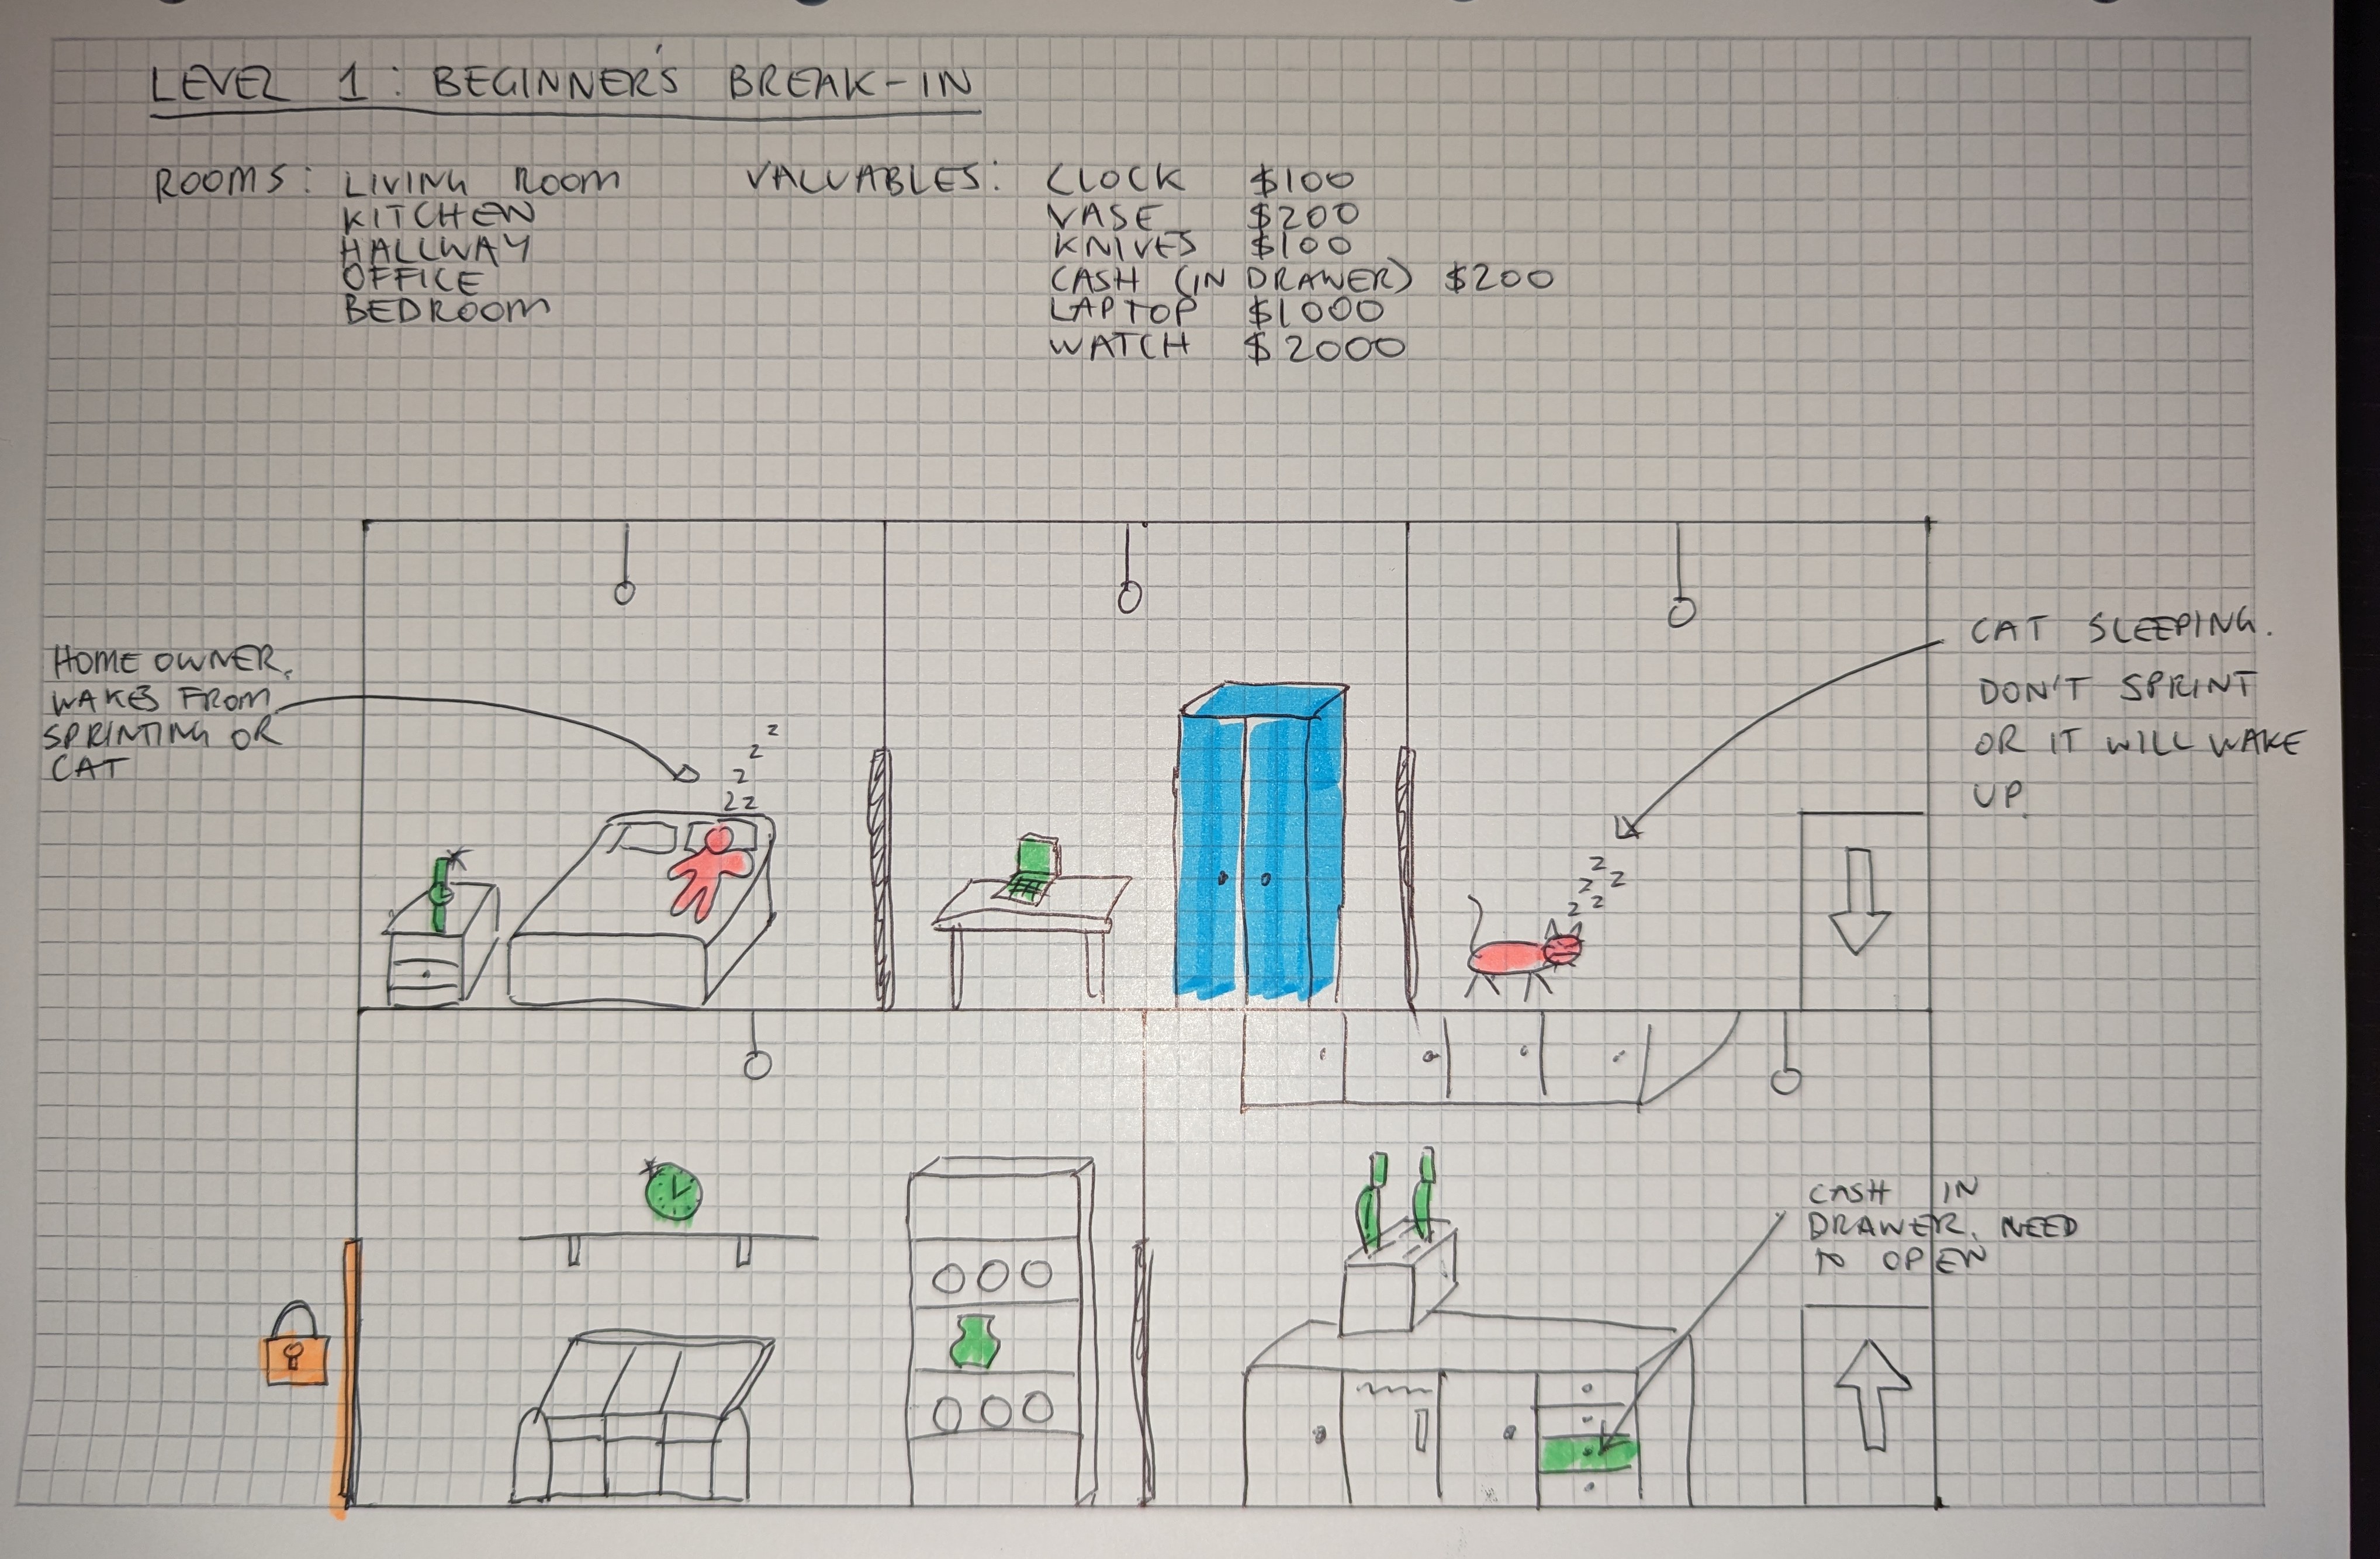 LEVEL 1: BEGINNER'S BREAK-IN
ROOMS: LIVING ROOM
KITCHEN
HALLWAY
OFFICE
BEDROOM
VALUABLES: CLOCK $100
VASE $200
KNIVES $100
CASH (IN DRAWER) $200
LAPTOP $1000
WATCH $2000
HOME OWNER.
WAKES FROM
SPRINTING OR
CAT
z
z
z
zz
CAT SLEEPING.
DON'T SPRINT
OR IT WILL WAKE
UP.
z
z z
z z
CASH IN
DRAWER. NEED
TO OPEN